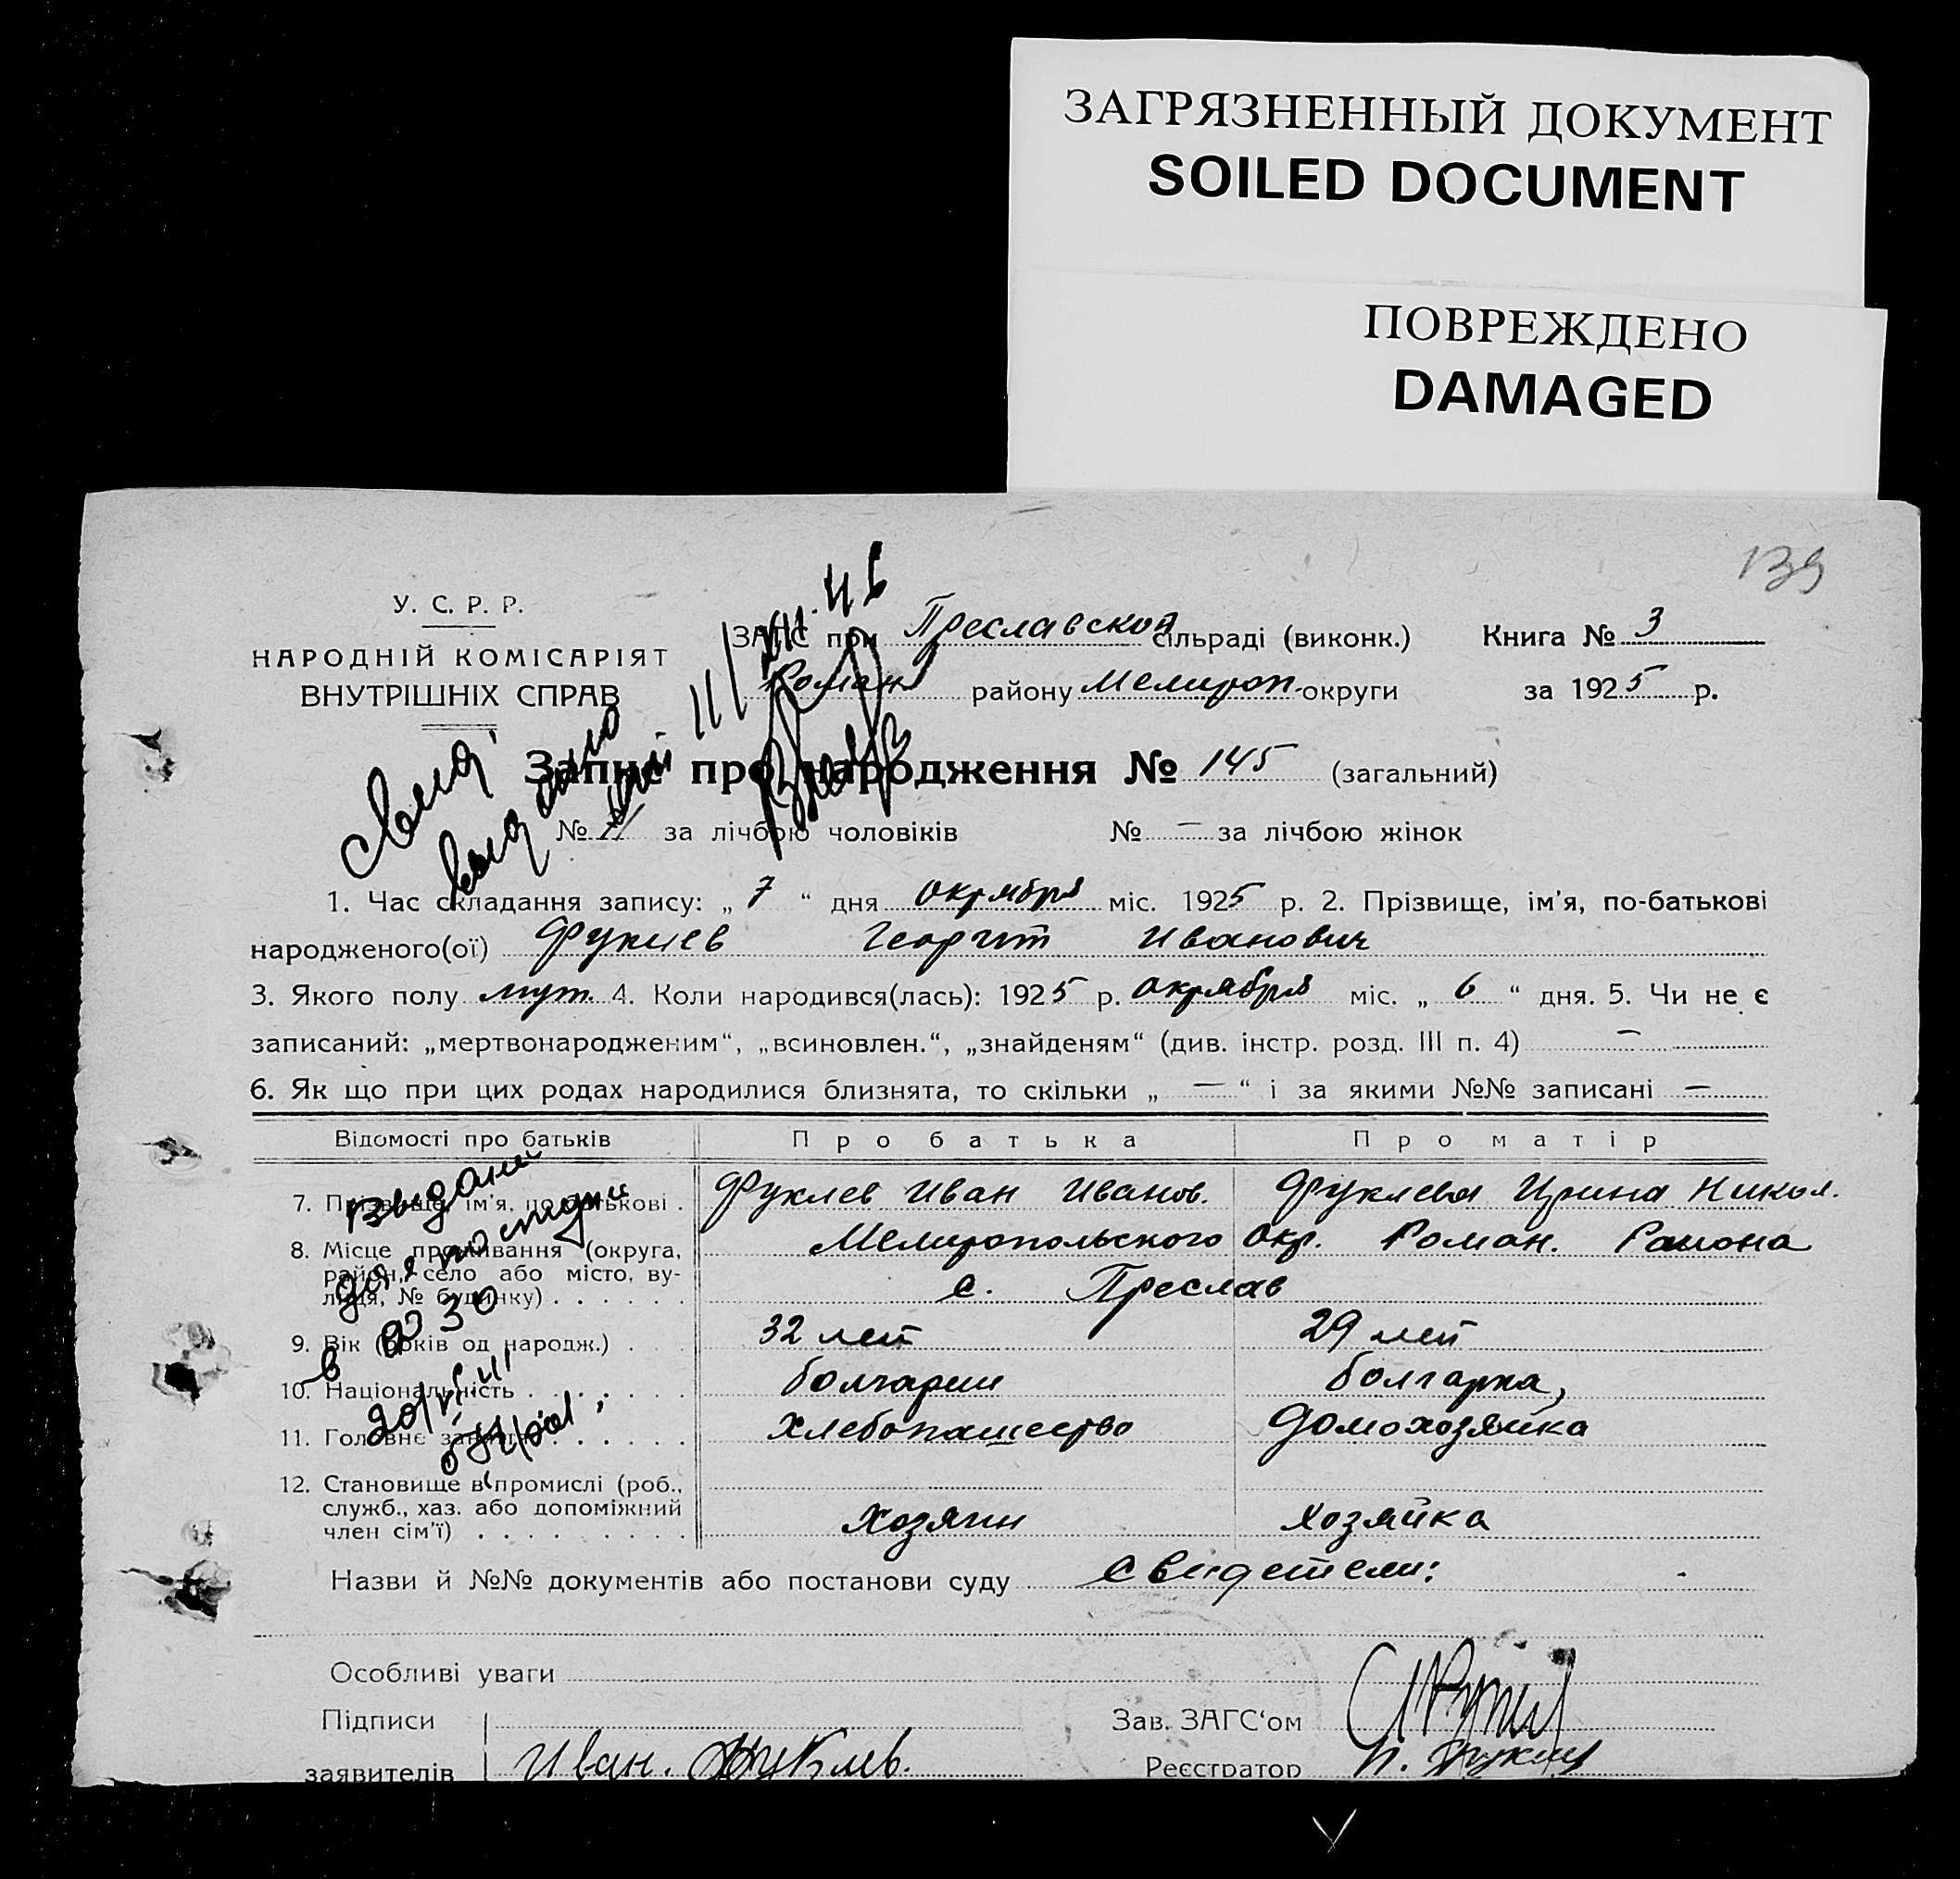 ЗАГРЯЗНЕННЫЙ ДОКУМЕНТ
SOILED DOCUMENT
ПОВРЕЖДЕНО
DAMAGED
139
У. С. Р. Р.
НАРОДНІЙ КОМІСАРІЯТ
ВНУТРІШНІХ СПРАВ
ЗАГС при Преславской сільраді (виконк.) Книга № 3
Роман района Мелитоп. округи за 1925 р.
Запис про народження № 145 (загальний)
№ за лічбою чоловіків № — за лічбою жінок
1. Час складання запису: „ 7 “ дня октября міс. 1925 р. 2. Прізвище, ім'я, по-батькові
народженого(ої) Фуклев Георгий Иванович
3. Якого полу муж. 4. Коли народився(лась): 1925 р. октября міс. „ 6 “ дня. 5. Чи не є
записаний: „мертвонародженим“, „всиновлен.“, „знайденям“ (див. інстр. розд. III п. 4) —
6. Як що при цих родах народилися близнята, то скільки „ — “ і за якими №№ записані —
Відомості про батьків Про батька Про матір
7. Прізвище, ім'я, по-батькові . Фуклев Иван Иванов. Фуклева Ирина Никол.
8. Місце проживання (округа, Мелитопольского Окр. Роман. Района
район, село або місто, ву-
лиця, № будинку) . . . . . . с. Преслав
9. Вік (років од народж.) . . . 32 лет 29 лет
10. Національність . . . . . . . болгарин болгарка,
11. Головне заняття . . . . . . хлебопашество домохозяйка
12. Становище в промислі (роб.,
служб., хаз. або допоміжний
член сім'ї) . . . . . . . . . хозяин хозяйка
Назви й №№ документів або постанови суду Свидетели:
Особливі уваги
Підписи Зав. ЗАГС'ом
заявителів Иван. Фуклев. Реєстратор
выдано